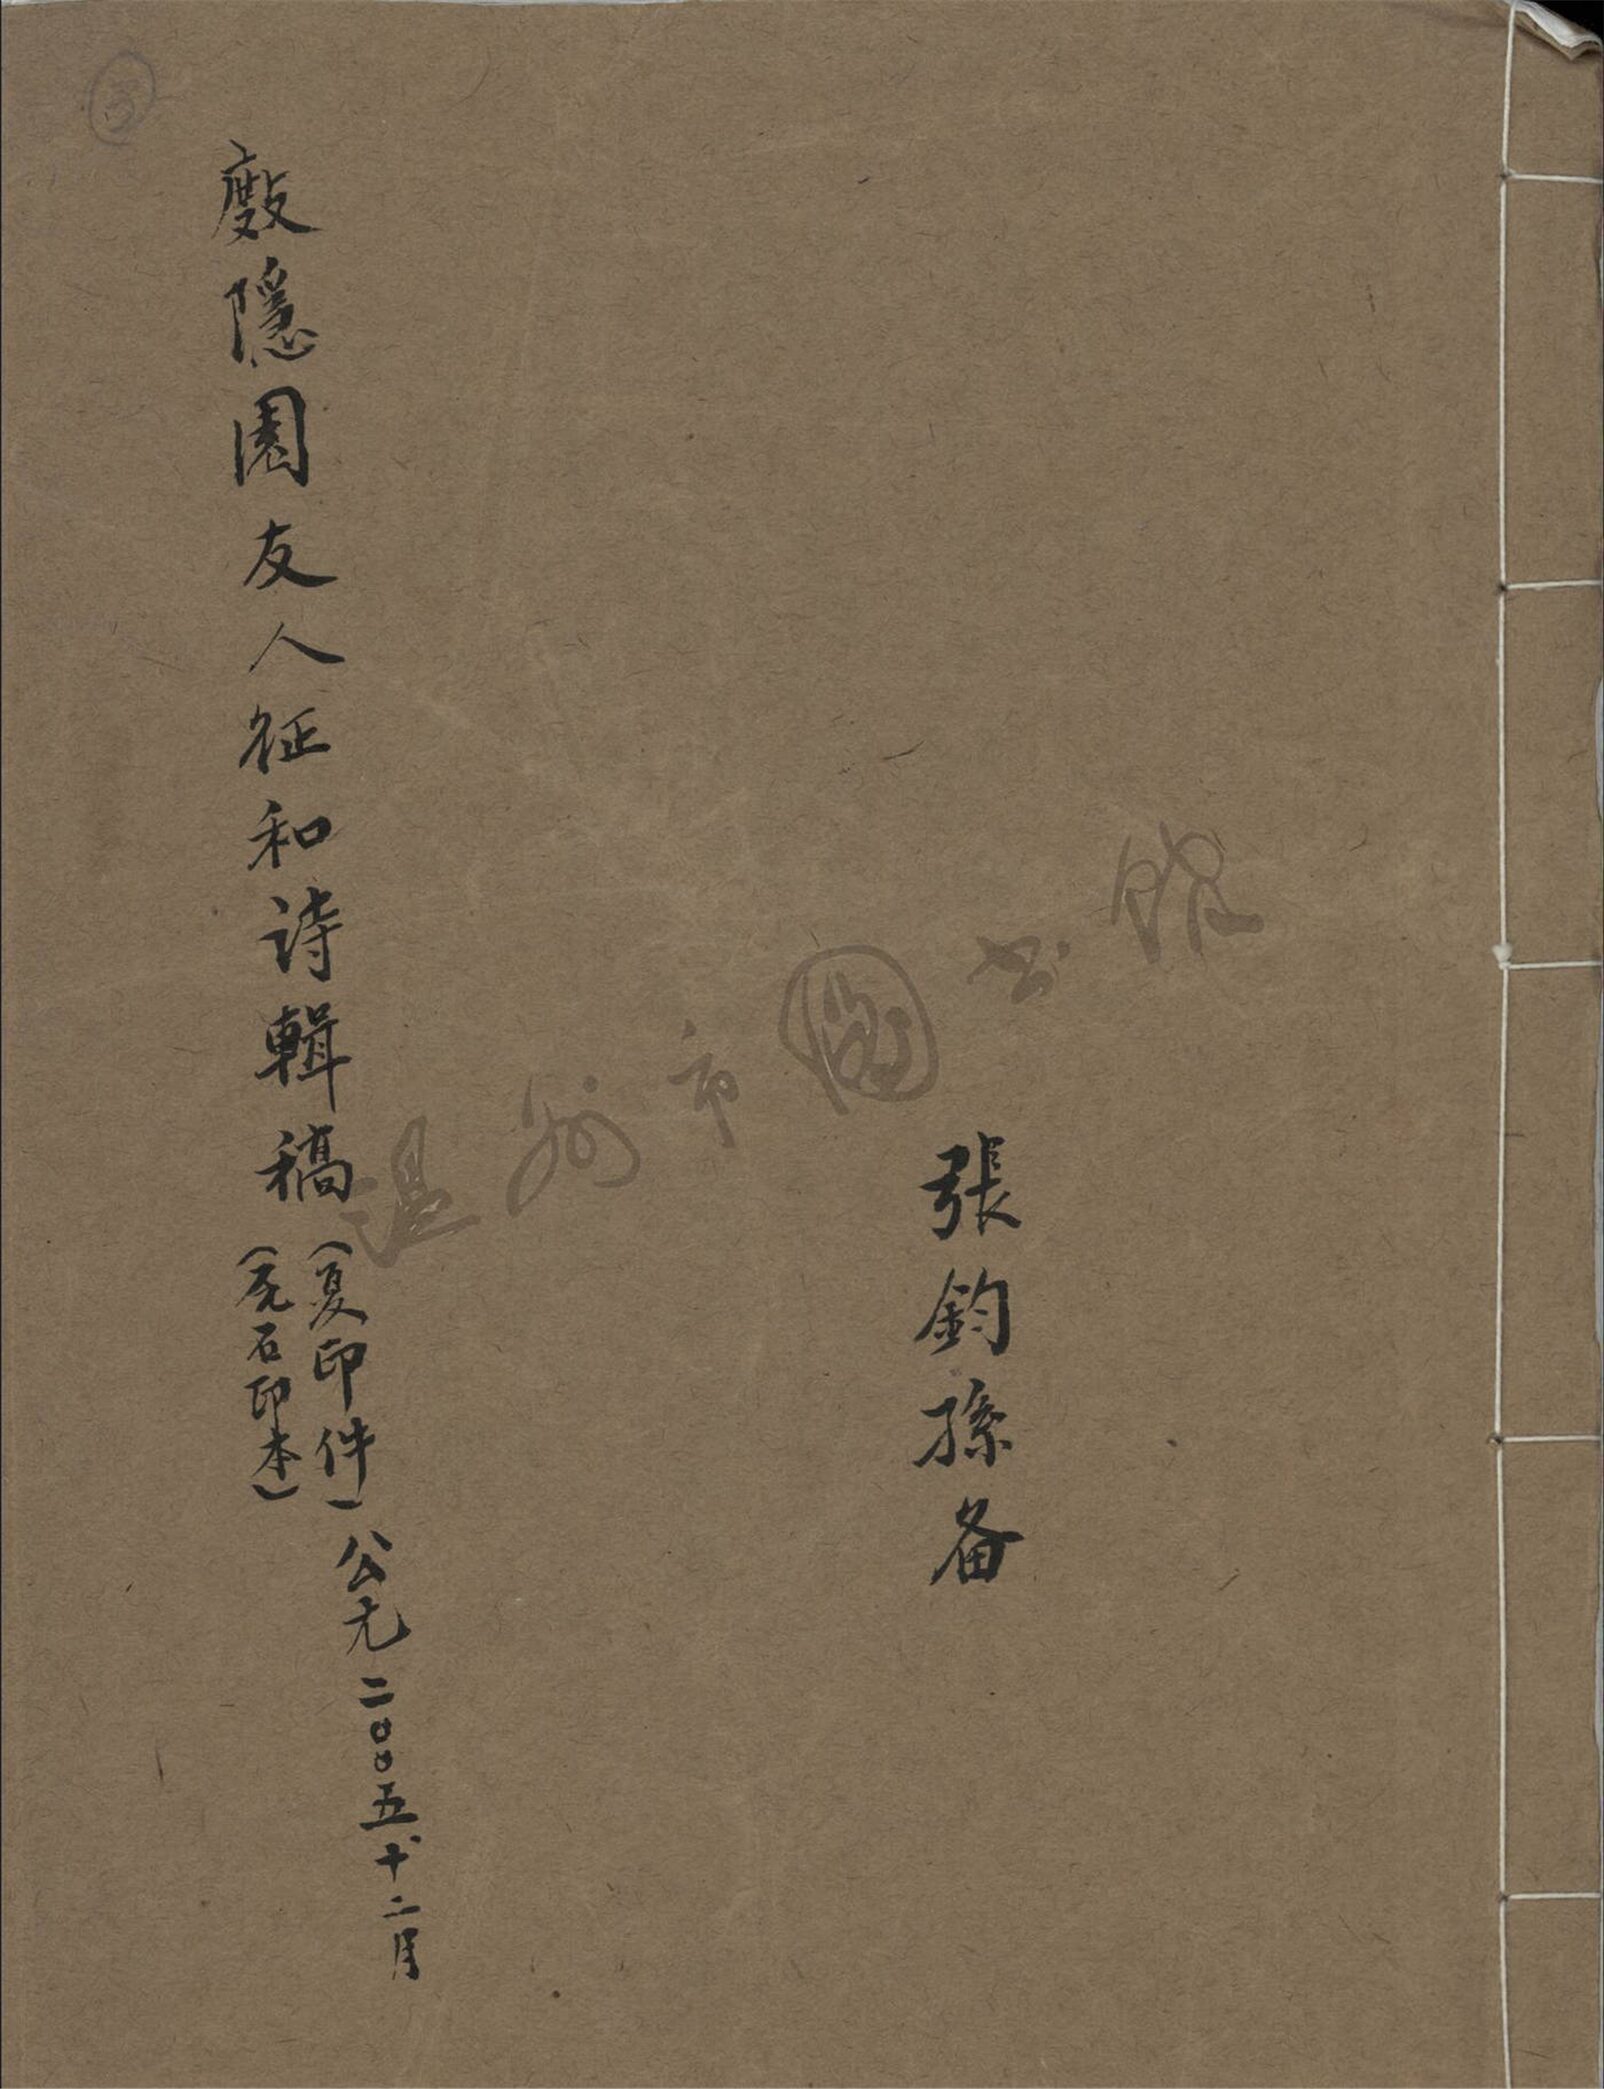 張鈞孫备
隱園友人征和诗輯稿
(复印件)
石印本)
公元二00五十二月
温州市圖书馆